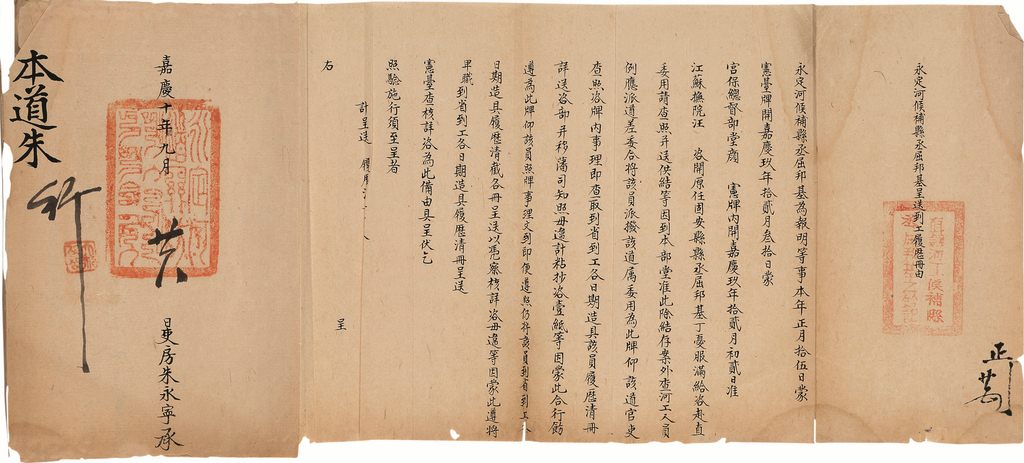 永定河候補縣丞屈邦基呈送到工履歷冊由
正廿
永定河候補縣丞屈邦基為報明等事本年正月拾伍日蒙
憲臺牌開嘉慶玖年拾貳月叁拾日蒙
宮保總督部堂顏 憲牌內開嘉慶玖年拾貳月初貳日准
江蘇撫院汪 咨開原任固安縣縣丞屈邦基丁憂服滿給咨赴直
委用請查照并送供結等因到本部堂准此除結存案外查河工人員
例應派道差委合將該員派撥該道屬委用為此牌仰該道官吏
查照咨牌內事理即查取到省到工各日期造具該員履歷清冊
詳送咨部并移藩司知照毋違計粘抄咨壹紙等因蒙此合行飭
遵為此牌仰該員照牌事理文到即便遵照仍將該員到省到工各
日期造具履歷清冊各冊呈送以憑察核詳咨毋違等因蒙此遵將
卑職到省到工各日期造具履歷清冊呈送
憲臺查核詳咨為此備由具呈伏乞
照驗施行須至呈者
計呈送 履歷
右 呈
嘉慶十年九月 廿
吏房朱永寧承
本道朱 行